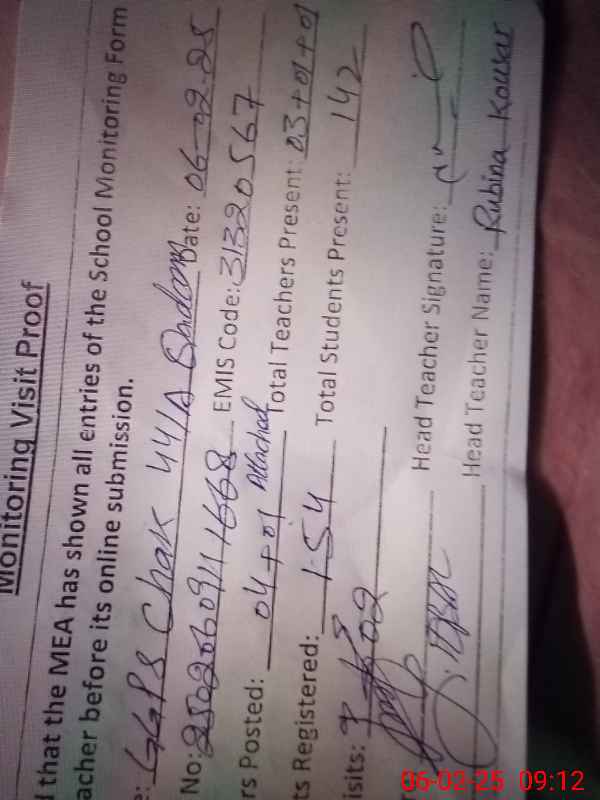 Monitoring Visit Proof
d that the MEA has shown all entries of the School Monitoring Form
acher before its online submission.
e: GGPS Chak 44/A Date: 06-02-25
No: EMIS Code: 31320567
rs Posted: 04+01 Attached Total Teachers Present: 03+01+01
ts Registered: 154 Total Students Present: 142
isits:
Head Teacher Signature:
Head Teacher Name: Rubina Kousar
06-02-25 09:12